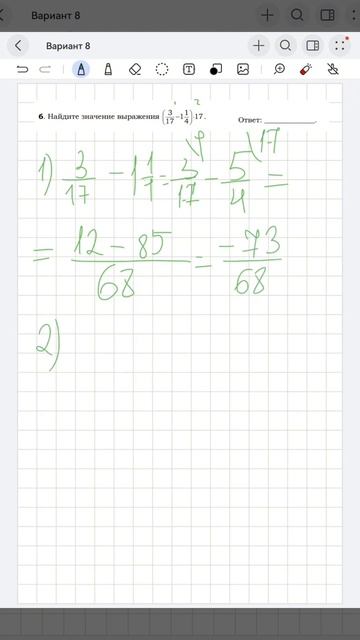 Вариант 8
Вариант 8
6. Найдите значение выражения (3/17 − 1 1/4) · 17. Ответ: ____________.
1 2
4 17
1) 3/17 − 1 1/4 = 3/17 − 5/4 =
= 12 − 85/68 = −73/68
2)